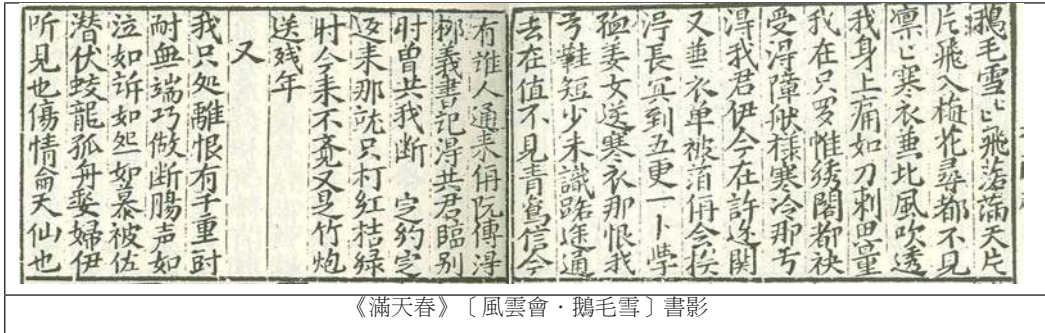 鵝毛雪匕飛落滿天片
片飛入梅花尋都不見
凛匕寒衣兼北風吹透
我身上痛如刀刺思量
我在只罗帷綉閣都袂
受得障般樣寒冷那亏
得我君伊今在許边関
又兼衣单被伊会挨
得長冥到五更一卜學
孟姜女送寒衣那恨我
弓鞋短少未識路途通
去在值不見青鸞信今
有誰人通来伊阮傳得
柳義書記得共君臨別
时曾共我断 定約定
返来那說只柯紅桔緑
时今来不竟又是竹炮
送残年
又
我只処離恨有千重
耐無端巧做断腸声如
泣如訴如怨如慕被佐
潜伏蛟龍孤舟嫠婦伊
听見也傷情侖天仙也
《滿天春》〔風雲會．鵝毛雪〕書影